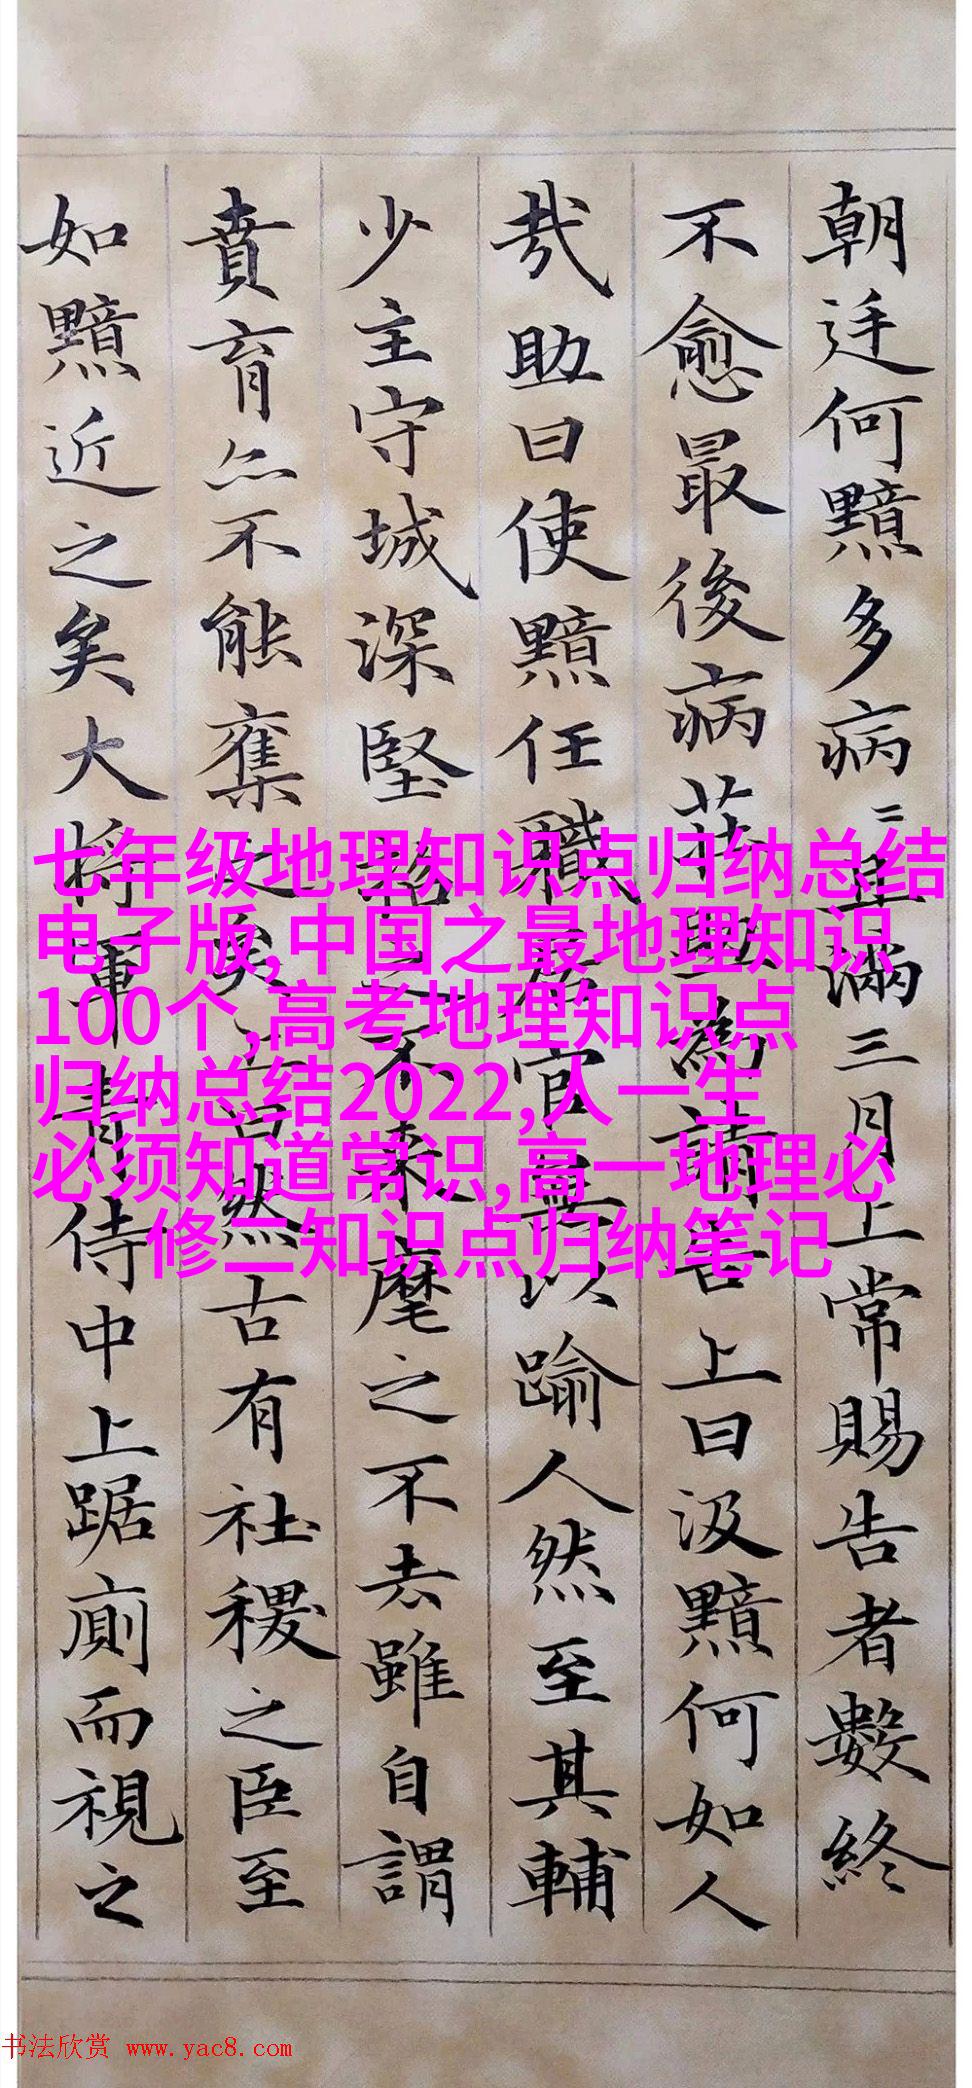 朝廷何黯多病二且滿三月上常賜告者數終
不愈最後病莊助為請告上曰汲黯何如人
哉助曰使黯任職居官無以踰人然至其輔
少主守城深堅招之不來麾之不去雖自謂
賁育亦不能奪之矣上曰然古有社稷之臣至
如黯近之矣大將軍青侍中上踞廁而視之
七年级地理知识点归纳总结
电子版,中国之最地理知识
100个,高考地理知识点
归纳总结2022,人一生
必须知道常识,高一地理必
修二知识点归纳笔记
书法欣赏 www.yac8.com